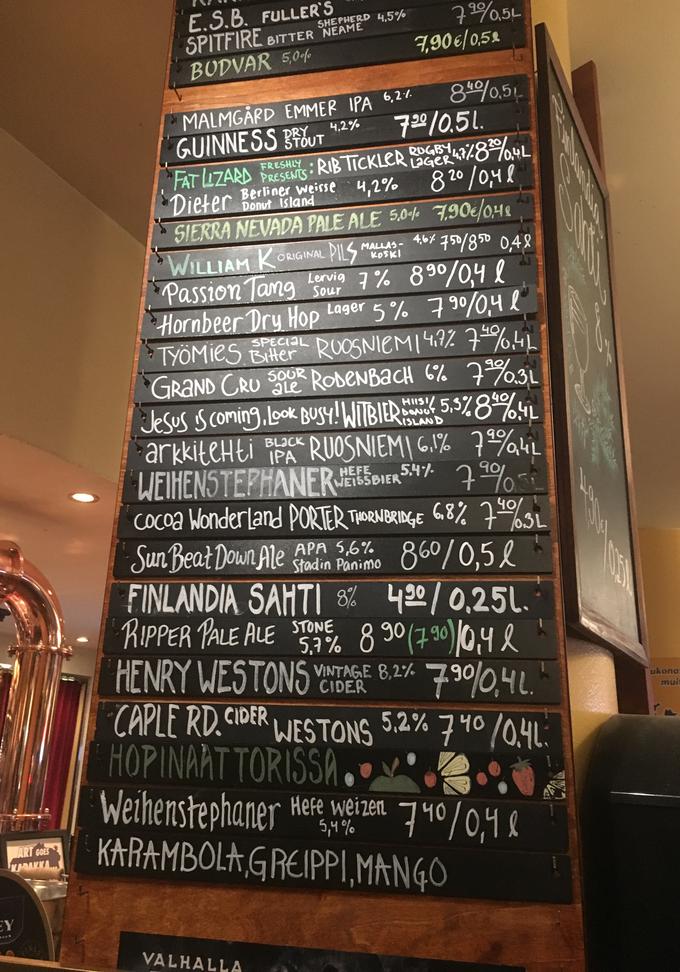 E.S.B. FULLER'S 4,5% 7 90/0,5L
SPITFIRE BITTER SHEPHERD NEAME
BUDVAR 5,0% 7,90€/0,5l
MALMGÅRD EMMER IPA 6,2% 8 40/0,5L
GUINNESS DRY STOUT 4,2% 7 90/0.5l.
FAT LIZARD FRESHLY PRESENTS: RIB TICKLER RUGBY LAGER 4,7% 8 20/0,4L
Dieter Berliner Weisse Donut Island 4,2% 8 20/0,4l
SIERRA NEVADA PALE ALE 5,0% 7,90€/0,4l
WILLIAM K ORIGINAL PILS MALLAS-KOSKI 4,6% 7 50/8 50 0,4l
Passion Tang Lervig Sour 7% 8 90/0,4 l
Hornbeer Dry Hop Lager 5% 7 90/0,4 l
TYÖMIES SPECIAL Bitter RUOSNIEMI 4,7% 7 40/0,4L
GRAND CRU SOUR ale RODENBACH 6% 7 90/0.3L
Jesus is coming, Look Busy! WITBIER HIISI/DONUT ISLAND 5,3% 8 40/0,4L
arkkitehti BLACK IPA RUOSNIEMI 6,1% 7 90/0,4L
WEIHENSTEPHANER HEFE WEISSBIER 5,4% 7 90/0,5L
cocoa Wonderland PORTER THORNBRIDGE 6,8% 7 40/0,3L
Sun Beat Down Ale APA 5,6% Stadin Panimo 8 60/0,5 l
FINLANDIA SAHTI 8% 4 90/0,25L.
RIPPER PALE ALE STONE 5,7% 8 90 (7 90)/0,4 l
HENRY WESTONS VINTAGE CIDER 8,2% 7 90/0,4L.
CAPLE RD. CIDER WESTONS 5,2% 7 40/0,4L.
HOPINAATTORISSA
Weihenstephaner Hefe Weizen 5,4% 7 40/0,4 l
KARAMBOLA, GREIPPI, MANGO
VALHALLA
Finlandia
Sahti
8%
4,90€/0,25l
ART GOES
KAPAKKA
EY